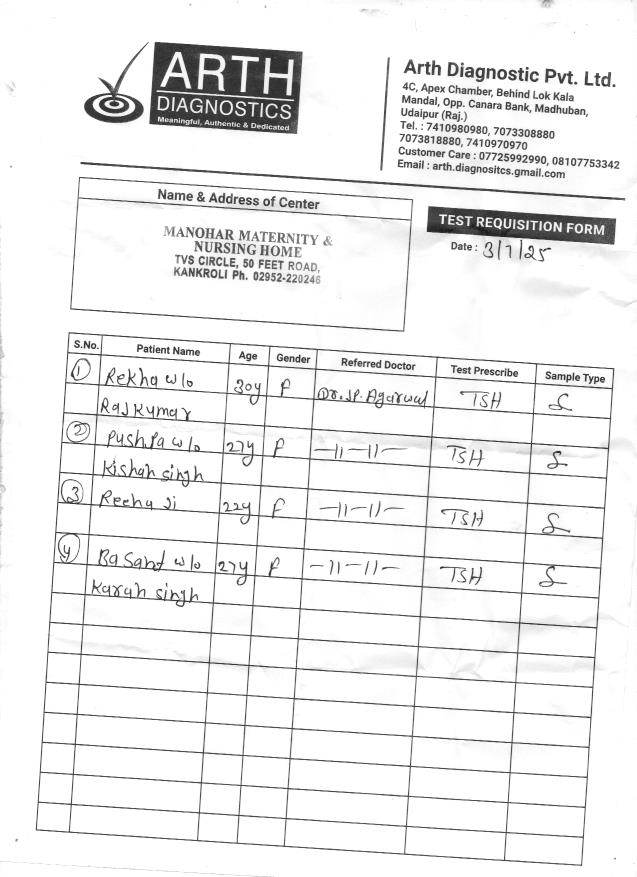 ARTH
DIAGNOSTICS
Meaningful, Authentic & Dedicated
Arth Diagnostic Pvt. Ltd.
4C, Apex Chamber, Behind Lok Kala
Mandal, Opp. Canara Bank, Madhuban,
Udaipur (Raj.)
Tel. : 7410980980, 7073308880
7073818880, 7410970970
Customer Care : 07725992990, 08107753342
Email : arth.diagnositcs.gmail.com
Name & Address of Center
MANOHAR MATERNITY &
NURSING HOME
TVS CIRCLE, 50 FEET ROAD,
KANKROLI Ph. 02952-220246
TEST REQUISITION FORM
Date : 3/7/25
S.No. Patient Name Age Gender Referred Doctor Test Prescribe Sample Type
1 Rekha w/o 30y F Dr. J.P. Agarwal TSH S
Rajkumar
2 Pushpa w/o 27y F -11-11- TSH S
Kishan singh
3 Reena Ji 22y F -11-11- TSH S
4 Basant w/o 27y F -11-11- TSH S
Karan singh